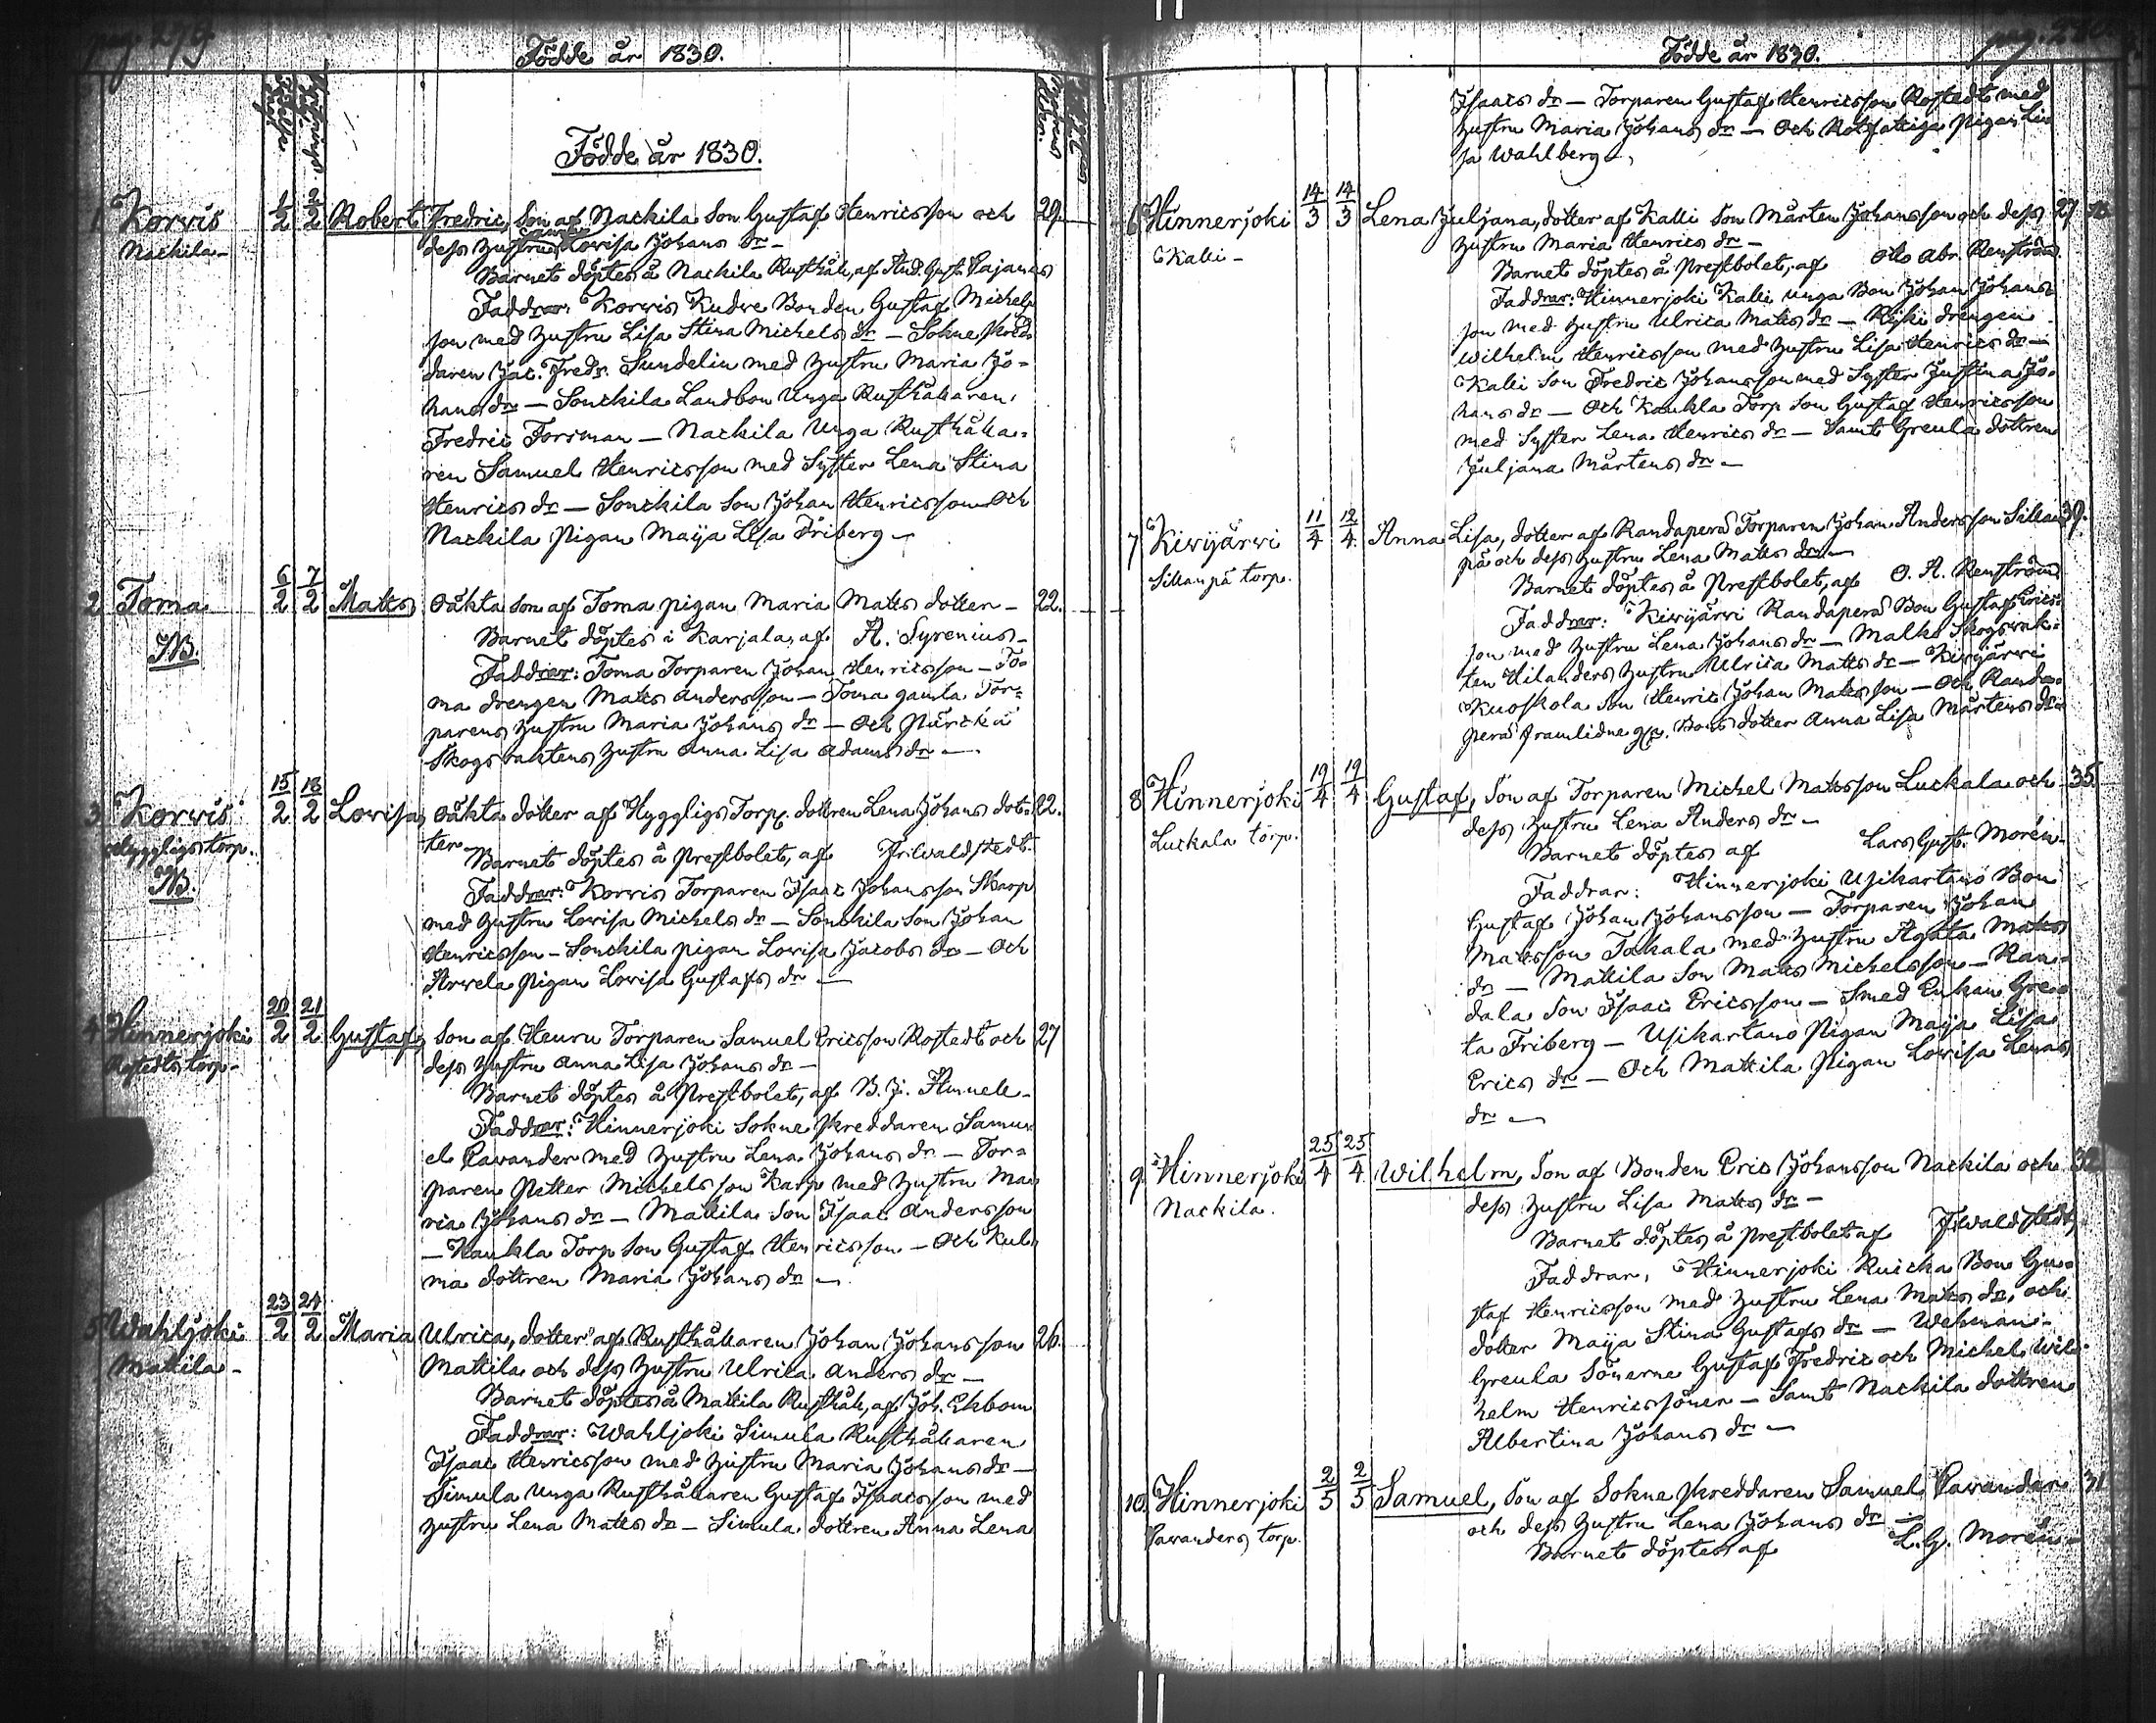 pag. 279.
Födde år 1830.
Födde år 1830.
1. Korvis 1/2 2/2 Robert Fredric, Son af Nackila Son Gustaf Henricsson och 29.
Nackila- dess hustru Lovisa Johans dr-
Barnet döptes å Nackila Rusthåll, af And. Gust. Cajanus
Faddrar: Korvis Kudve Bonden Gustaf Michels
son med hustru Lisa Stina Michels dr - Sokne skräd
daren Jac. Fredr. Sundelin med hustru Maria Jo-
hans dr - Sonckila Landbon Unga Rusthållaren
Fredric Forsman - Nackila Unga Rusthålla-
ren Samuel Henricsson med Syster Lena Stina
Henrics dr - Sonckila Son Johan Henricsson Och
Nackila Pigan Maija Lisa Friberg -
2. Toma 6/2 7/2 Matts Oäkta son af Toma pigan Maria Matts dotter - 22.
NB. Barnet döptes i Karjala, af A. Syrenius-
Faddrar: Toma Torparen Johan Henricsson - To-
ma drengen Matts Andersson - Toma gamla Tor-
parens hustru Maria Johans dr - Och
Skogsvaktens hustru Anna Lisa Adams dr -
3. Korvis 15/2 18/2 Lovisa, Oäkta dotter af Hyggligs Torp. dottren Lena Johans dot- 22.
Hyggligs torp. ter- Barnet döptes å Prestbolet, af Fr. Waldstedt.
NB. Faddrar: Korvis Torparen Isaac Johansson Skarp
med hustru Lovisa Michels dr - Sonckila Son Johan
Henricsson - Sonckila pigan Lovisa Jacobs dr - Och
Arvela Pigan Lovisa Gustafs dr -
4. Hinnerjoki 20/2 21/2 Gustaf, Son af Heuru Torparen Samuel Ericsson Rostedt och 27
Rostedts torp- dess hustru Anna Lisa Johans dr -
Barnet döptes å Prestbolet, af B. J.
Faddrar: Hinnerjoki Sokne skreddaren Samu-
el Pavander med hustru Lena Johans dr - Tor-
paren Petter Michelsson Karp med hustru Ma-
ria Johans dr - Mattila Son Isaac Andersson
- Kaukla Torp Son Gustaf Henricsson - Och
dottren Maria Johans dr -
5. Wahljoki 23/2 24/2 Maria Ulrica, dotter af Rusthållaren Johan Johansson 26.
Mattila- Mattila och dess hustru Ulrica Anders dr -
Barnet döptes å Mattila Rusthåll, af Joh. Ekbom
Faddrar: Wahljoki Simula Rusthållaren
Isaac Henricsson med hustru Maria Johans dr -
Simula Unga Rusthållaren Gustaf Isaacsson med
hustru Lena Matts dr - Simula dottren Anna Lena
pag. 280
Födde år 1830.
Isaacs dr - Torparen Gustaf Henricsson Rostedt med
hustru Maria Johans dr - Och Rotfattiga Pigan Li-
sa Wahlberg -
6. Hinnerjoki 14/3 14/3 Lena Juljana, dotter af Kalli Son Mårten Johansson och dess 27
Kalli- hustru Maria Henrics dr -
Barnet döptes å Prestbolet, af Otto Abr. Renström.
Faddrar: Hinnerjoki Kalli unga Bon Johan Johans-
son med hustru Ulrica Matts dr - drengen
Wilhelm Henricsson med hustru Lisa Henrics dr -
Kalli Son Fredric Johansson med Syster Justina Jo-
hans dr - Och Kaukla Torp Son Gustaf Henricsson
med Syster Lena Henrics dr - Samt Greula dottren
Juljana Mårtens dr -
7 Kivijärvi 11/4 12/4 Anna Lisa, dotter af Randaperä Torparen Johan Andersson Sillan- 39.
Sillanpä torp. pä och dess hustru Lena Matts dr -
Barnet döptes å Prestbolet, af O. A. Renström
Faddrar: Kivijärvi Randaperä Bon Gustaf Erics-
son med hustru Lena Johans dr - Skogsvak-
ten Hilanders hustru Ulrica Matts dr - Kivijärvi
Kuoskola Son Henric Johan Mattsson - Och Randa-
perä framlidne Bons dotter Anna Lisa Mårtens dr
8 Hinnerjoki 19/4 19/4 Gustaf, Son af Torparen Michel Mattsson Luckala och 35.
Luckala torp. dess hustru Lena Anders dr -
Barnet döptes af Lars Gust. Morén-
Faddrar: Hinnerjoki Usikartano Bon
Gustaf Johan Johansson - Torparen Johan
Mattsson Takala med hustru Agata Matts
dr - Mattila Son Matts Michelsson - Ran-
dala Son Isaac Ericsson - Smed Enkan Gre-
ta Friberg - Usikartano Pigan Maija Lisa
Erics dr - Och Mattila Pigan Lovisa Lenas
dr -
9. Hinnerjoki 25/4 25/4 Wilhelm, Son af Bonden Eric Johansson Nackila och 32
Nackila. dess hustru Lisa Matts dr -
Barnet döptes å prestbolet af F. Waldstedt
Faddrar, Hinnerjoki Bon Gu-
staf Henricsson med hustru Lena Matts dr, och
dotter Maija Stina Gustafs dr - Wehmani-
Greula Sönerne Gustaf Fredric och Michel Wil-
helm Henricssöner - Samt Nackila dottren
Albertina Johans dr -
10. Hinnerjoki 2/5 2/5 Samuel, Son af Sokne skreddaren Samuel Pavander 31
Pavanders torp. och dess hustru Lena Johans dr -
Barnet döptes af L. G. Morén-